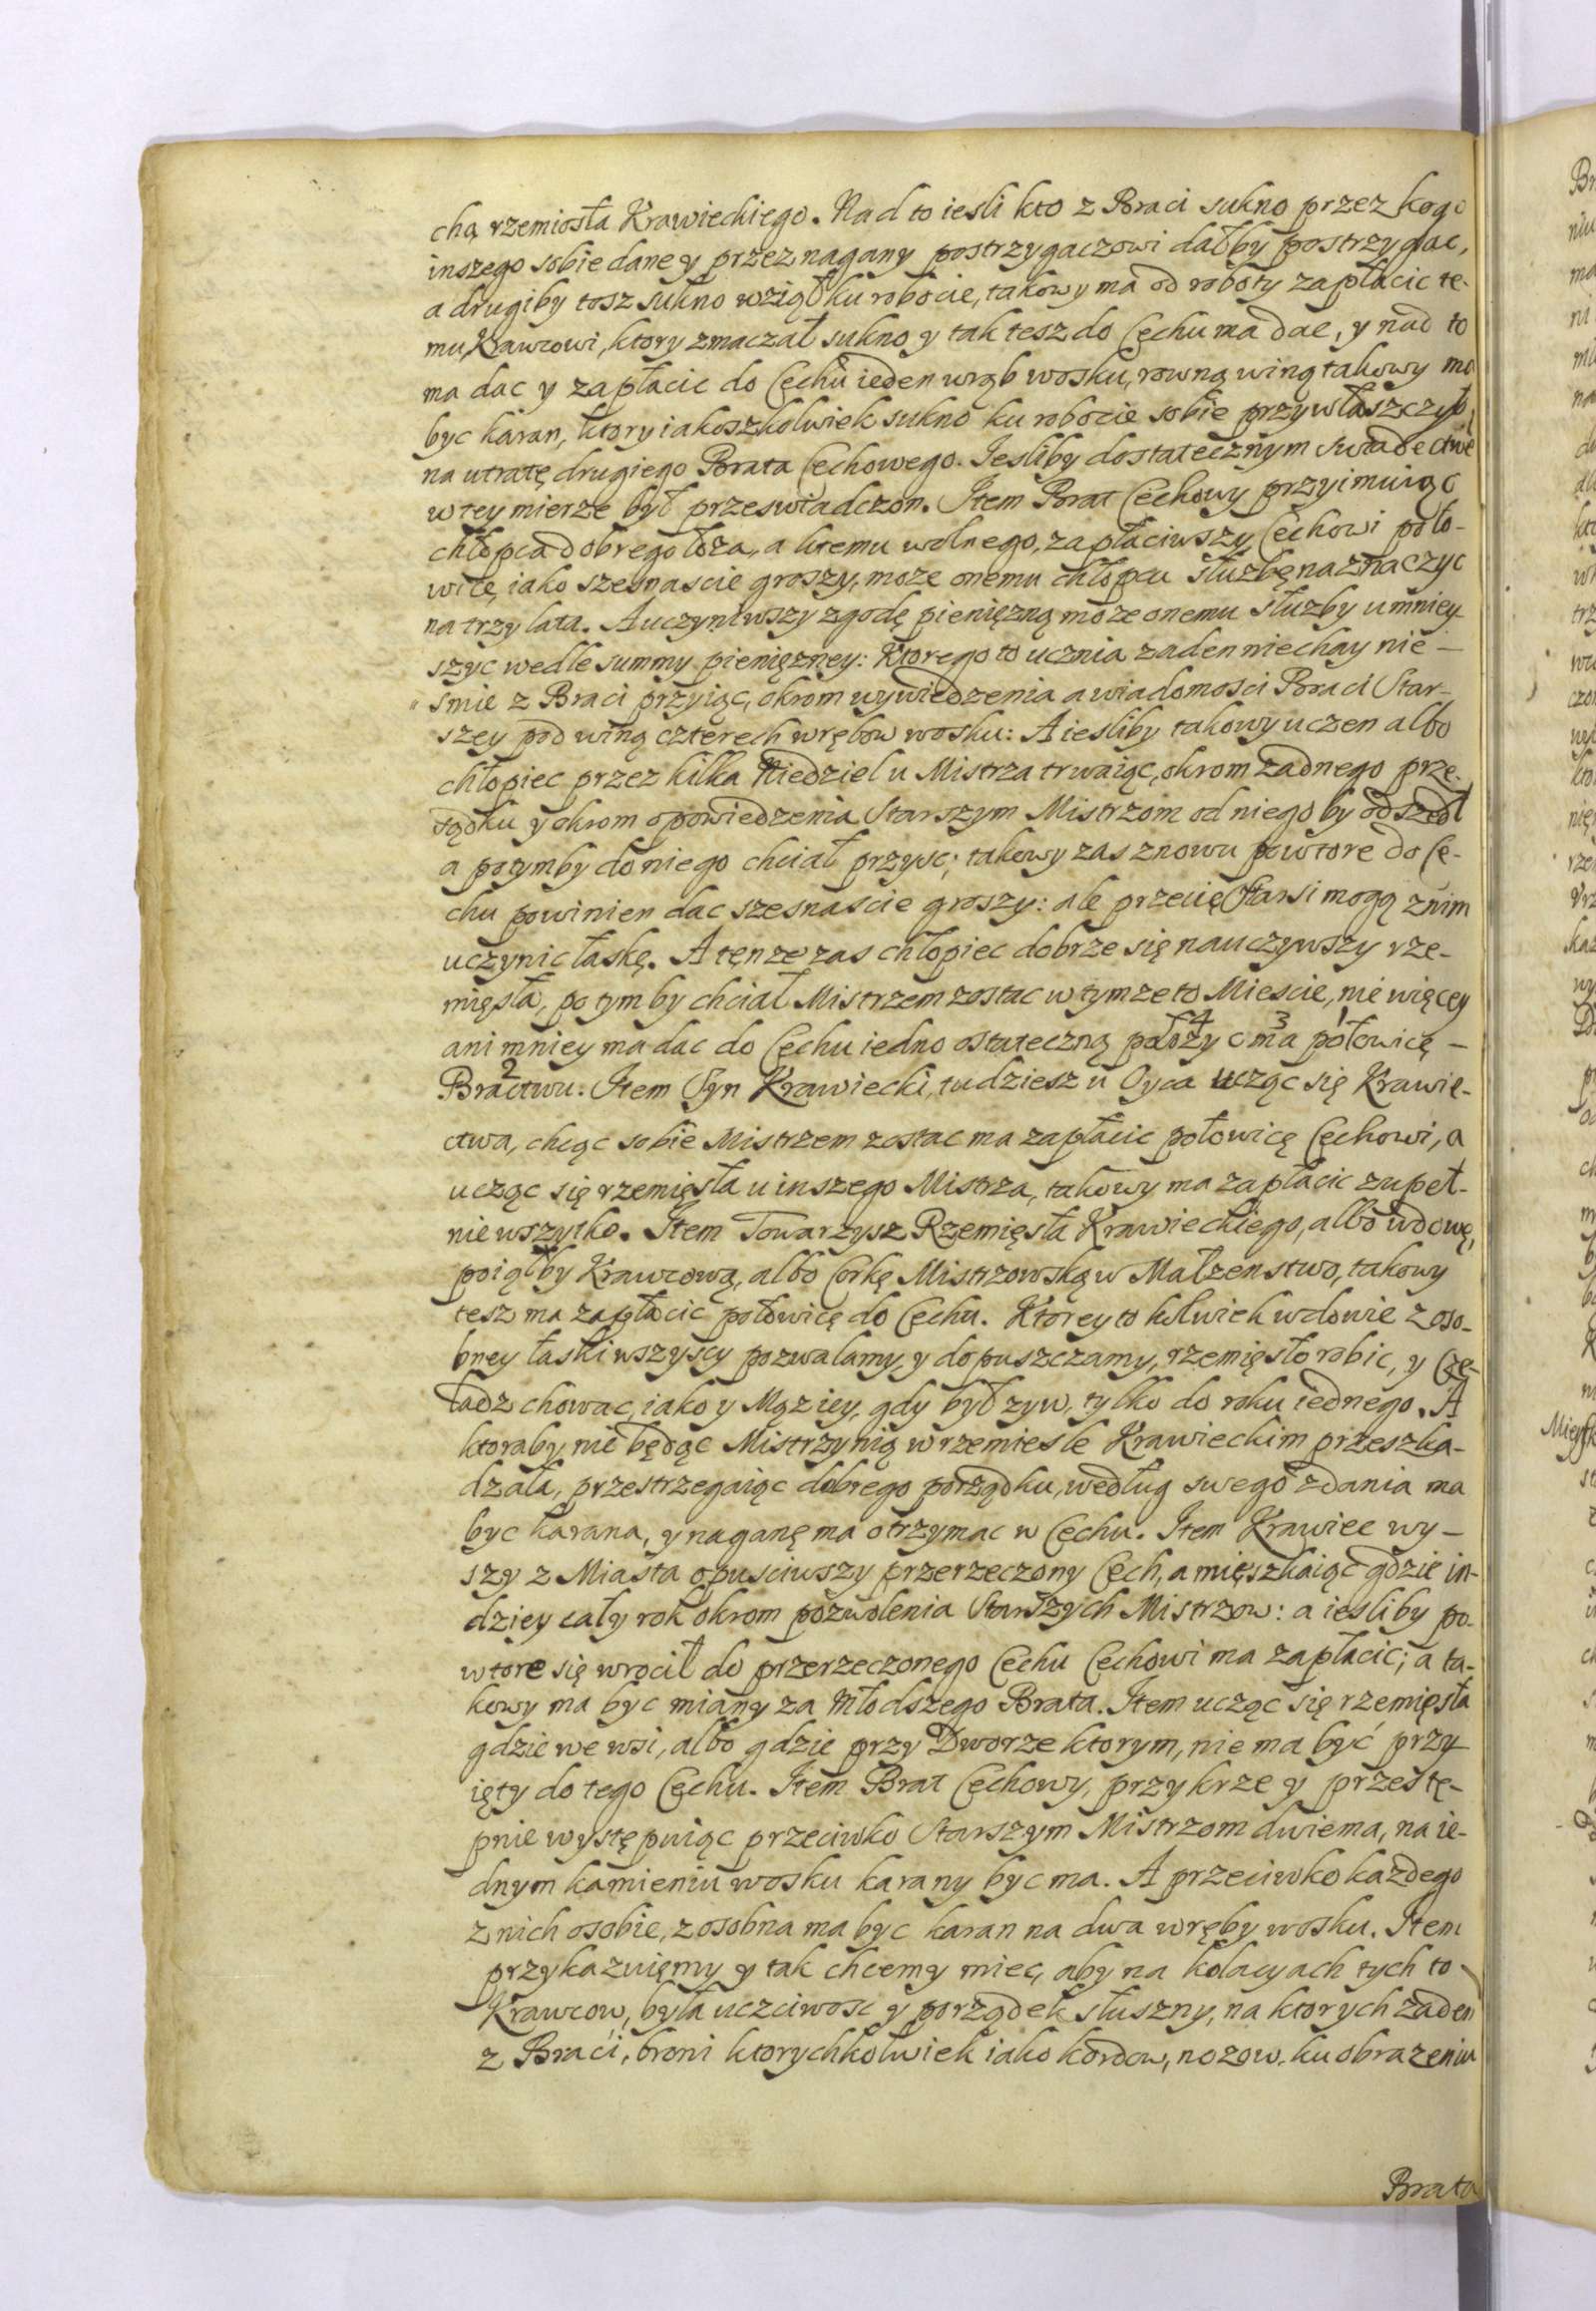 chą rzemiosła Krawieckiego. Nad to iesli kto z Braci sukno przez kogo
inszego sobie dane y przez nagany postrzygaczowi dałby postrzygac,
a drugiby tosz sukno wziął ku robocie, takowy ma od roboty zapłacic te-
mu Krawcowi, ktory zmaczał sukno y tak tesz do Cechu ma dac, y nad to
ma dac y zapłacic do Cechu ieden wrąb wosku, rowną winą takowy ma
byc karan, ktory iakoszkolwiek sukno ku robocie sobie przywłaszczył,
na utratę drugiego Brata Cechowego. Iesliby dostatecznym swiadectwe
w tey mierze był przeswiadczon. Item Brat Cechowy przyimuiąc
chłopca dobrego łoza, a ktemu wolnego, zapłaciwszy Cechowi poło-
wicę, iako szesnascie groszy, moze onemu chłopcu słuzbę naznaczyc
na trzy lata. A uczyniwszy zgodę pienięzną moze onemu słuzby umniey-
szyc wedle summy pienięzney: Ktorego to ucznia zaden niechay nie -
smie z Braci przyiąc, okrom wywiedzenia a wiadomosci Braci Star-
szey pod winą czterech wrębow wosku: A iesliby takowy uczen albo
chłopiec przez kilka Niedziel u Mistrza trwaiąc, okrom zadnego prze-
sądku y okrom opowiedzenia Starszym Mistrzom od niego by odszedł
a potymby do niego chciał przysc; takowy zas znowu powtore do Ce-
chu powinien dac szesnascie groszy: ale przecię Starsi mogą z nim
uczynic łaskę. A tenze zas chłopiec dobrze się nauczywszy rze-
mięsła, potym by chciał Mistrzem zostac w tymze to Miescie, nie więcey
ani mniey ma dac do Cechu iedno ostateczną położyc 4 ma 3 połowicę 1 -
Bractwu 2. Item Syn Krawiecki, tudziesz u Oyca ucząc się Krawie-
ctwa, chcąc sobie Mistrzem zostac ma zapłacic połowicę Cechowi, a
ucząc się rzemięsła u inszego Mistrza, takowy ma zapłacic zupeł-
nie wszytko. Item Towarzysz Rzemięsła Krawieckiego, albo wdowę,
poiąłby Krawcową, albo Corkę Mistrzowską w Małzenstwo, takowy
tesz ma zapłacic połowicę do Cechu. Ktorey to kolwiek wdowie z oso-
bney łaski wszyscy pozwalamy, y dopuszczamy, rzemięsło robic, y Cze-
ladz chowac, iako y Mąz iey, gdy był zyw, tylko do roku iednego. A
ktoraby nie będąc Mistrzynią w rzemiesle Krawieckim przeszka-
dzała, przestrzegaiąc dobrego porządku, według swego zdania ma
byc karana, y naganę ma otrzymac w Cechu. Item Krawiec wy-
szy z Miasta opusciwszy przerzeczony Cech, a mięszkaiąc gdzie in-
dziey cały rok okrom pozwolenia Starszych Mistrzow: a iesliby po-
wtore się wrocił do przerzeczonego Cechu Cechowi ma zapłacic; a ta-
kowy ma byc miany za Młodszego Brata. Item ucząc się rzemięsła
gdzie we wsi, albo gdzie przy Dworze ktorym, nie ma być przy-
ięty do tego Cechu. Item Brat Cechowy, przykrze y przestę-
pnie występuiąc przeciwko Starszym Mistrzom dwiema, na ie-
dnym kamieniu wosku karany byc ma. A przeciwko kazdego
z nich osobie, z osobna ma byc karan na dwa wręby wosku. Item
przykazuięmy y tak chcemy miec, aby na kolacyach tych to
Krawcow, była uczciwosc y porządek słuszny, na ktorych zaden
z Braci, broni ktorychkolwiek iako kordow, nozow, ku obrazeniu
Brata